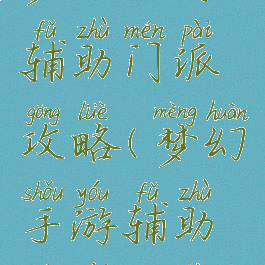 fǔ zhù mén pài
辅助门派
gōng lüè mèng huàn
攻略(梦幻
shǒu yóu fǔ zhù
手游辅助